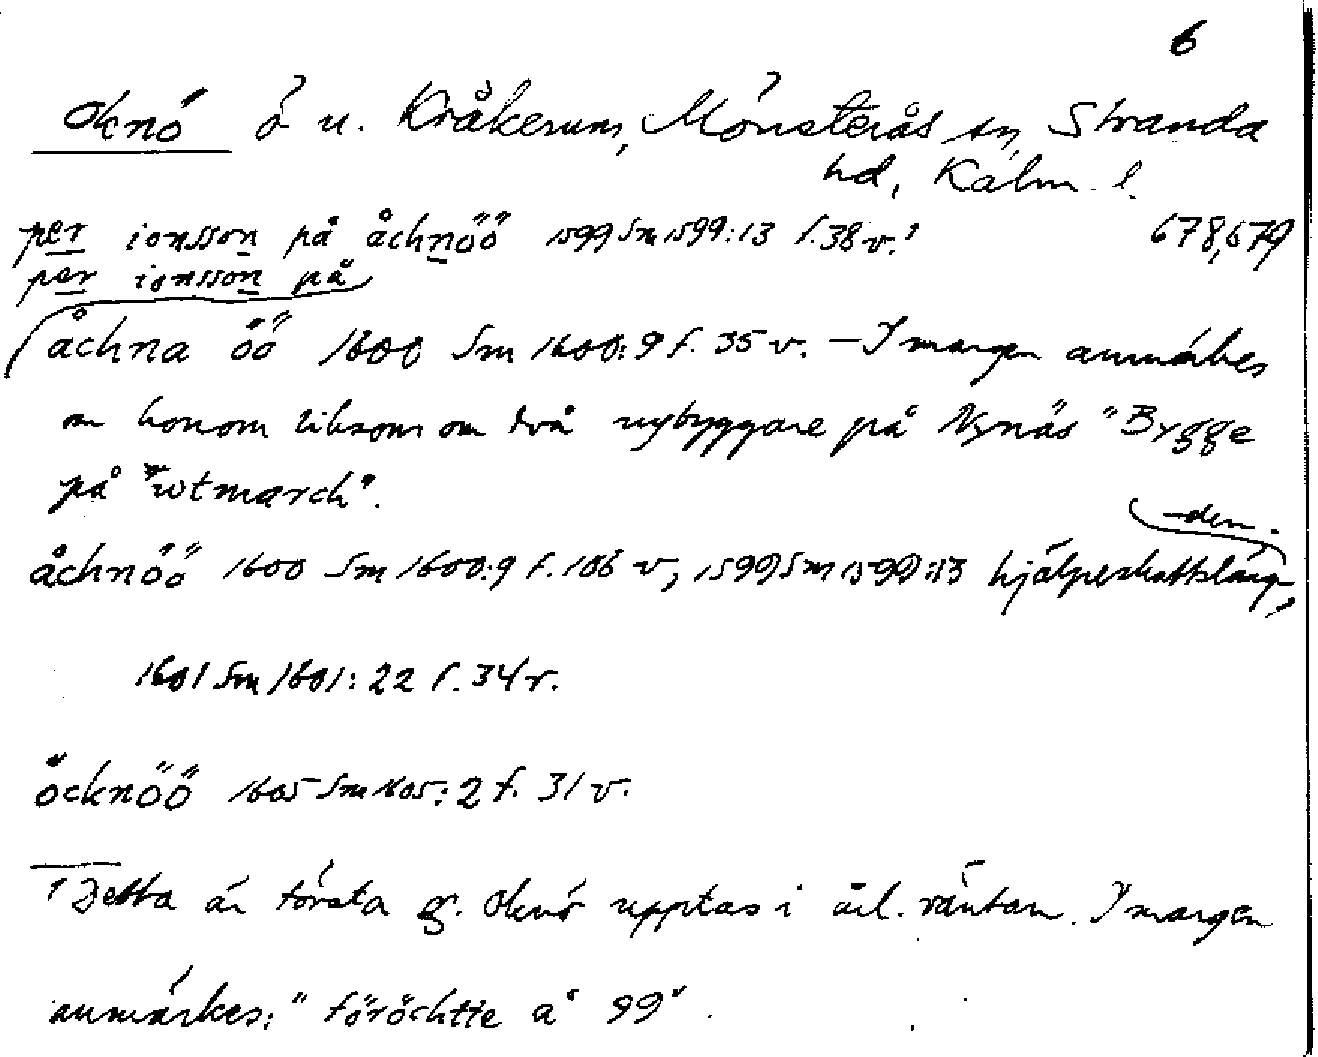 6
Oknö ö u. Kråkerum, Mönsterås sn, Stranda
hd, Kalm. l.
per ionsson på åchnöö 1599 Sm 1599:13 f. 38 v.¹ 678,679
per ionsson på
åchna öö 1600 Sm 1600:9 f. 35 v. – I margen anmärkes
om honom liksom om två nybyggare på Nynäs "Bygge
på wtmarch".
åchnöö 1600 Sm 1600:9 f. 106 v, 1599 Sm 1599:13 hjälpeskattsläng-
den.
1601 Sm 1601:22 f. 34 v.
öcknöö 1605 Sm 1605:2 f. 31 v.
¹ Detta är första g. Oknö upptas i årl. räntan. I margen
anmärkes: "föröchtte a° 99".